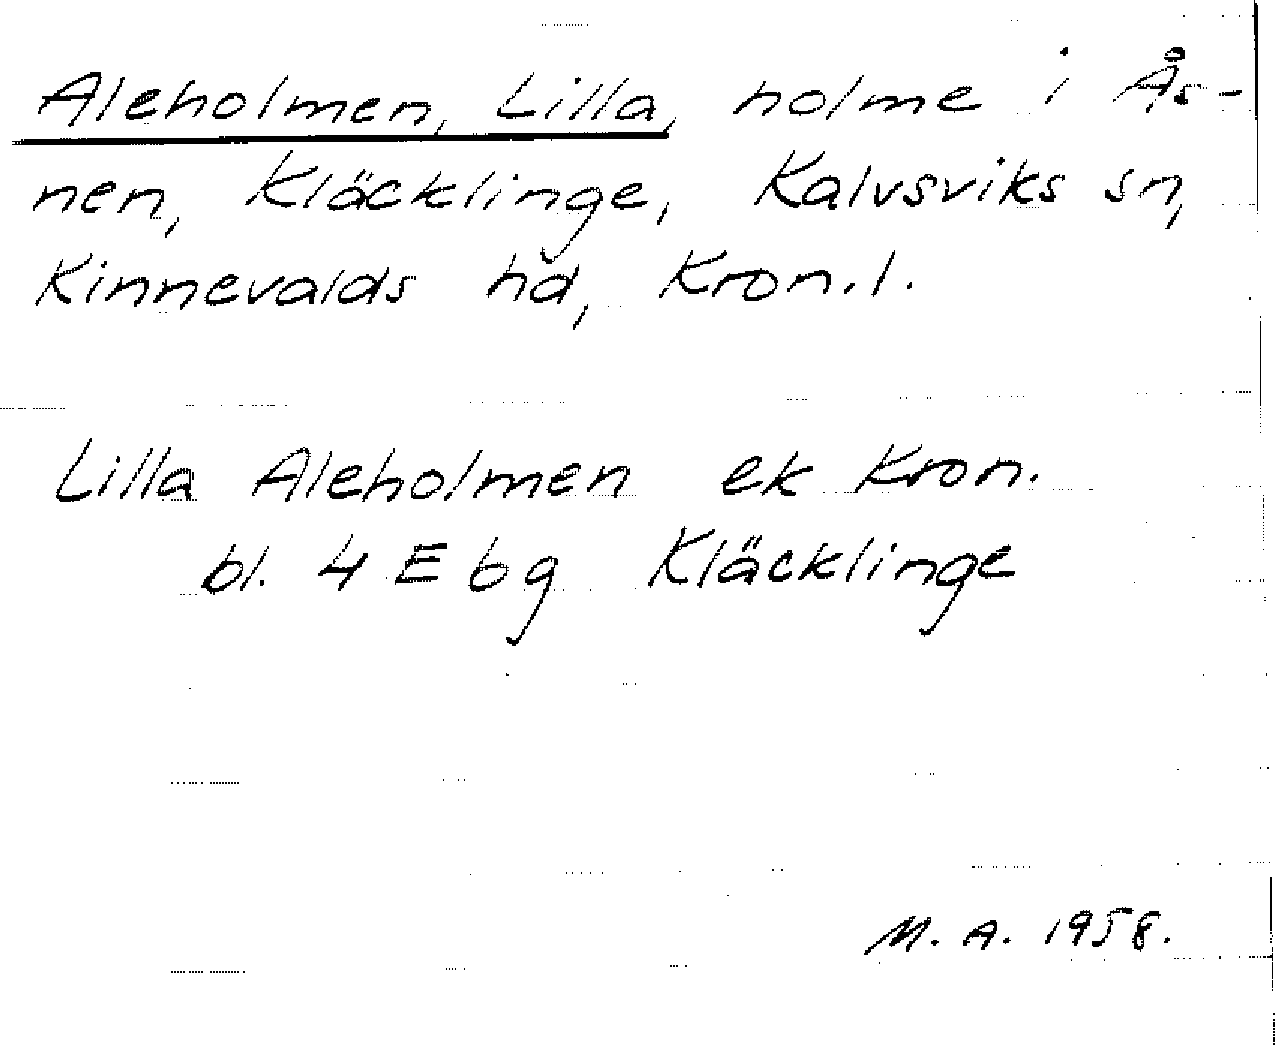 Aleholmen, Lilla, holme i Ås-
nen, Kläcklinge, Kalvsviks sn,
Kinnevalds hd, Kron.l.
Lilla Aleholmen ek Kron.
bl. 4 E b g Kläcklinge
M. A. 1958.